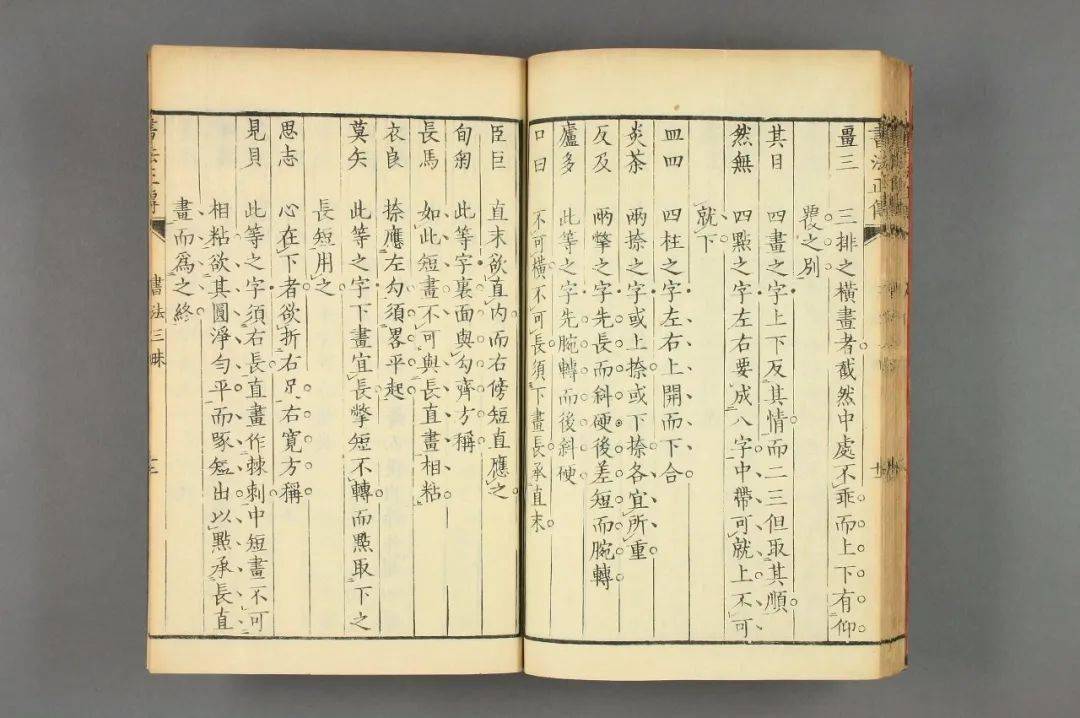 書法正傳
畺三 三排之橫畫者截然中處不乖而上下有仰
覆之別
其目 四畫之字上下反其情而二三但取其順
然無 四點之字左右要成八字中帶可就上不可
就下
皿四 四柱之字左右上開而下合
炎茶 兩捺之字或上捺或下捺各宜所重
反及 兩撆之字先長而斜硬後差短而腕轉
廬多 此等之字先腕轉而後斜硬
口曰 不可橫不可長須下畫長承直末
臣巨 直末欲直內而右傍短直應之
旬匊 此等字裏面與勾齊方稱
長馬 如此短畫不可與長直畫相粘
衣良 捺應左勾須畧平起
莫矢 此等之字下畫宜長撆短不轉而點取下之
長短用之
思志 心在下者欲折右足右寬方稱
見貝 此等之字須右長直畫作棘刺中短畫不可
相粘欲其圓淨勻平而豕短出以點承長直
畫而爲之終
書法三昧